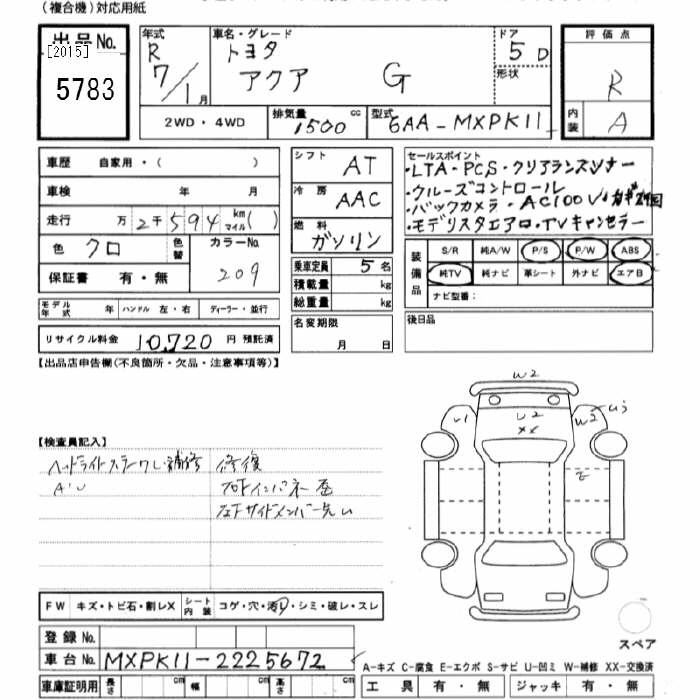 (複合機)対応用紙
出品No.
[2015]
5783
年式
R
7/1月
車名・グレード
トヨタ
アクア G
ドア
5D
形状
評価点
R
内装
A
2WD・4WD
排気量
1500cc
型式
6AA-MXPK11
車歴 自家用・( )
車検 年 月
走行 万2千594km マイル( )
色 クロ
色替
カラーNo.
209
保証書 有・無
モデル年式 年 ハンドル 左・右 ディーラー・並行
リサイクル料金 10,720円 預託済
シフト AT
冷房 AAC
燃料 ガソリン
乗車定員 5名
積載量 kg
総重量 kg
名変期限
月 日
セールスポイント
・LTA・PCS・クリアランスソナー
・クルーズコントロール
・バックカメラ・AC100V・カギ2個
・モデリスタエアロ・TVキャンセラー
装備品
S/R 純A/W P/S P/W ABS
純TV 純ナビ 革シート 外ナビ エアB
ナビ型番:
後日品
【出品店申告欄(不良箇所・欠品・注意事項等)】
【検査員記入】
ヘッドライトステーワレ・補修
A・U
修復
左フサイドメンバー先U
W2
U1
U2
XX
W2
U3
E
FW キズ・トビ石・割レX
シート内装 コゲ・穴・汚レ・シミ・破レ・スレ
スペア
登録No.
車台No. MXPK11-2225672
車庫証明用 長さ cm 幅 cm 高さ cm
A-キズ C-腐食 E-エクボ S-サビ U-凹ミ W-補修 XX-交換済
工具 有・無 ジャッキ 有・無